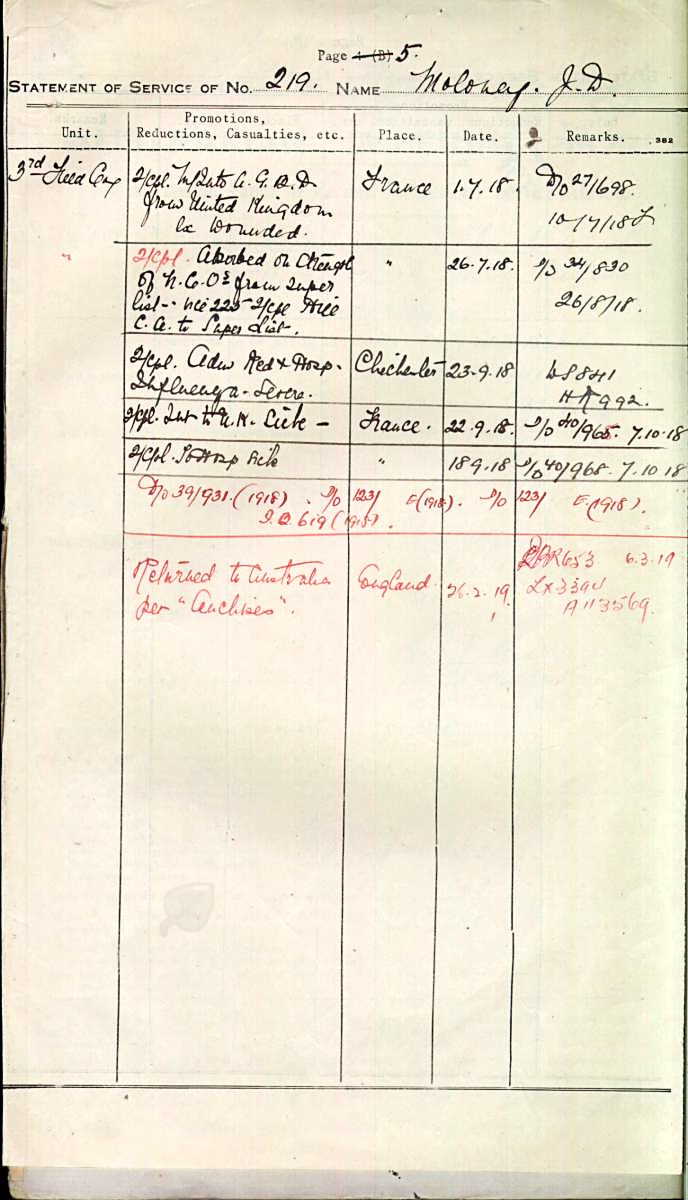 Page 4 (B) 5.
STATEMENT OF SERVICE OF NO. 219. NAME Moloney. J. D.
Unit.
Promotions,
Reductions, Casualties, etc.
Place.
Date.
Remarks.
382
3rd Field Coy
2/Cpl. M/Into A. G. B. D
from United Kingdom
ex Wounded.
France
1.7.18.
D/O 27/698.
10/7/18
"
2/Cpl. Absorbed on Strength
of N.C.Os from Super
list
2/Cpl
C.A. to Super List.
"
26.7.18.
D/O 34/820
26/8/18.
2/Cpl. Adm Hosp.
Influenza - Severe.
Chichester
23.9.18
992.
2/Cpl. Inv to U.K. Sick -
France.
22.9.18.
D/O 40/965. 7.10.18
2/Cpl. To Hosp Sick
"
18 9.18
D/O 40/968. 7.10 18
D/O 39/931. (1918) . D/O 123/ E(1918). D/O 123/ E.(1918).
619 (1918).
Returned to Australia
per "Anchises".
England.
26.2.19.
653 6.3.19